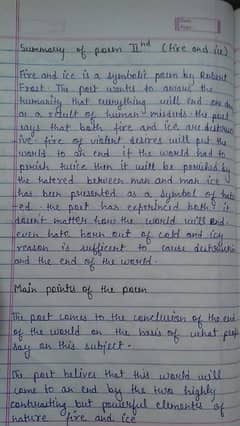 Summary of poem IInd (Fire and ice)
Fire and ice is a symbolic poem by Robert
Frost. The poet wants to aware the
humanity that everything will end one day
as a result of human misdeeds the poet
says that both fire and ice are destruct
ive fire of violent desires will put the
world to an end if the world had to
perish twice then it will be perished by
the hatered between man and man ice
has been presented as a symbol of hatr
ed. the poet has exprinced both it
doesn't matter how the world will end.
even hate born out of cold and icy
reason is sufficent to cause destruction
and the end of the world.
Main points of the poem
The poet comes to the conclusion of the end
of the world on the basis of what people
say on this subject.
The poet belives that this world will
come to an end by the two highly
contrasting but powerful elements of
nature fire and ice